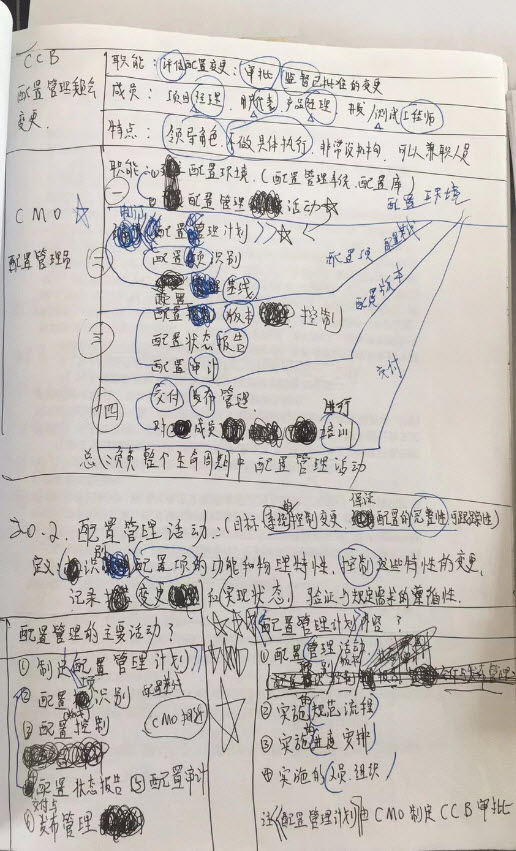 CCB
配置管理委员会
变更
职能：评估配置变更；审批 监督已批准的变更
成员：项目经理、用户代表 产品经理 开发/测试工程师
特点：领导角色、不做具体执行、非常设机构、可以兼职人员
CMO
配置管理员
职能
一
配置环境（配置管理系统、配置库）
配置管理 活动
二
《配置管理计划》
配置项识别
配置 基线
三
配置 版本 控制
配置状态报告
配置审计
四
交付 发布管理
对 成员 进行 培训
配置环境
配置项
配置版本
交付
总：负责整个生命周期中配置管理活动
20.2.配置管理活动：（目标 系统的控制变更 保证 配置的完整性 可跟踪性）
定义：识别 配置项的功能和物理特性，控制这些特性的变更，
记录 变更 和实现状态 验证与规定需求的遵循性。
配置管理的主要活动？
①制定《配置管理计划》
②配置项识别
③配置控制
CMO
配置状态报告 ⑤配置审计
⑥交付与发布管理
《配置管理计划》内容？
①配置管理活动
②实施的规范流程
③实施的进度安排
④实施的人员、组织
注《配置管理计划》由CMO制定CCB审批